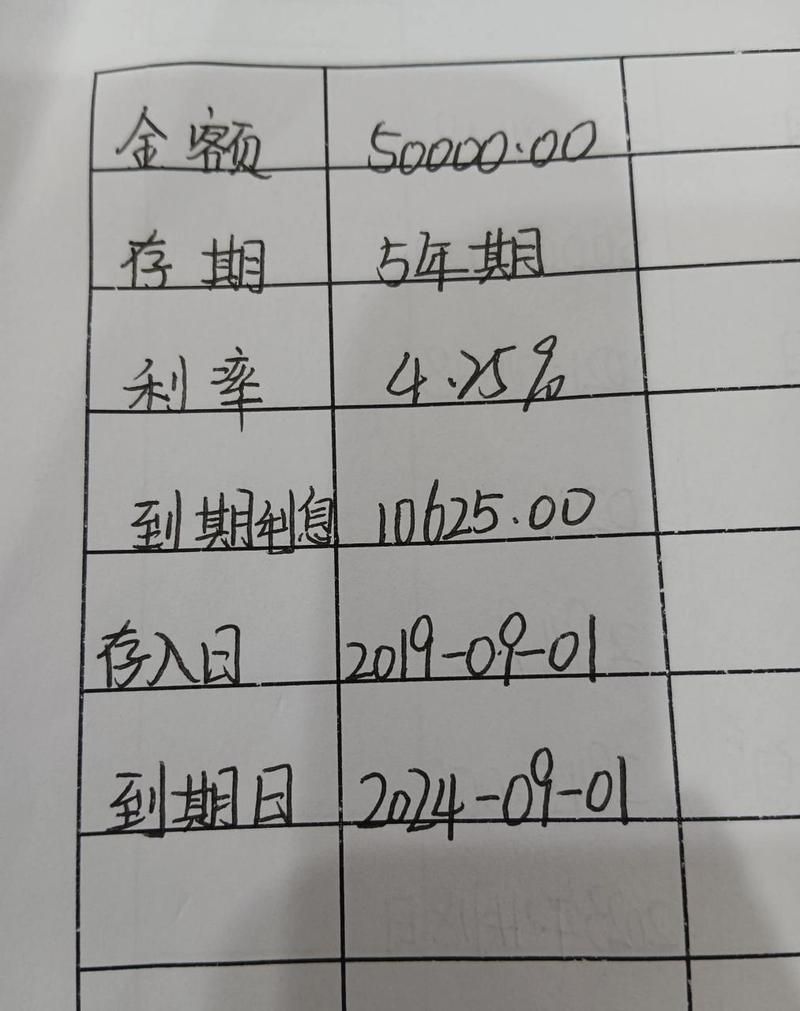 金额 50000.00
存期 5年期
利率 4.25%
到期利息 10625.00
存入日 2019-09-01
到期日 2024-09-01